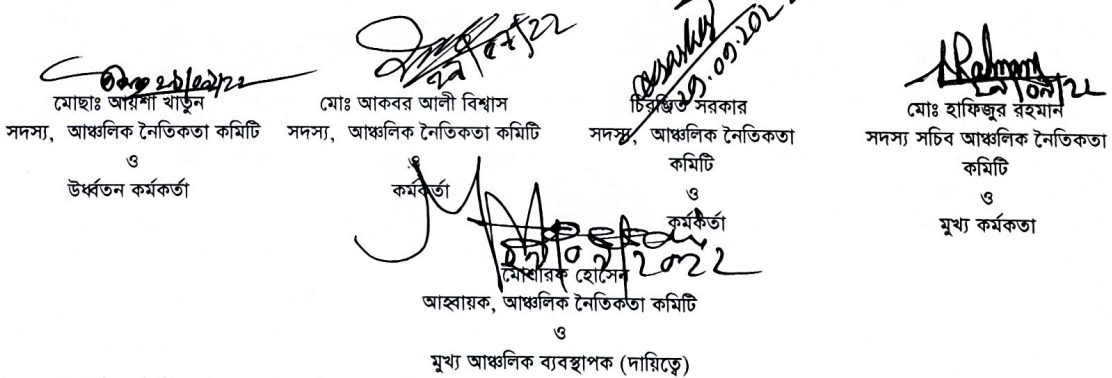 মোছাঃ আয়শা খাতুন
সদস্য, আঞ্চলিক নৈতিকতা কমিটি
ও
উর্ধ্বতন কর্মকর্তা
মোঃ আকবর আলী বিশ্বাস
সদস্য, আঞ্চলিক নৈতিকতা কমিটি
ও
কর্মকর্তা
চিরঞ্জিত সরকার
সদস্য, আঞ্চলিক নৈতিকতা
কমিটি
ও
কর্মকর্তা
মোঃ হাফিজুর রহমান
সদস্য সচিব আঞ্চলিক নৈতিকতা
কমিটি
ও
মুখ্য কর্মকতা
মোবারক হোসেন
আহ্বায়ক, আঞ্চলিক নৈতিকতা কমিটি
ও
মুখ্য আঞ্চলিক ব্যবস্থাপক (দায়িত্বে)